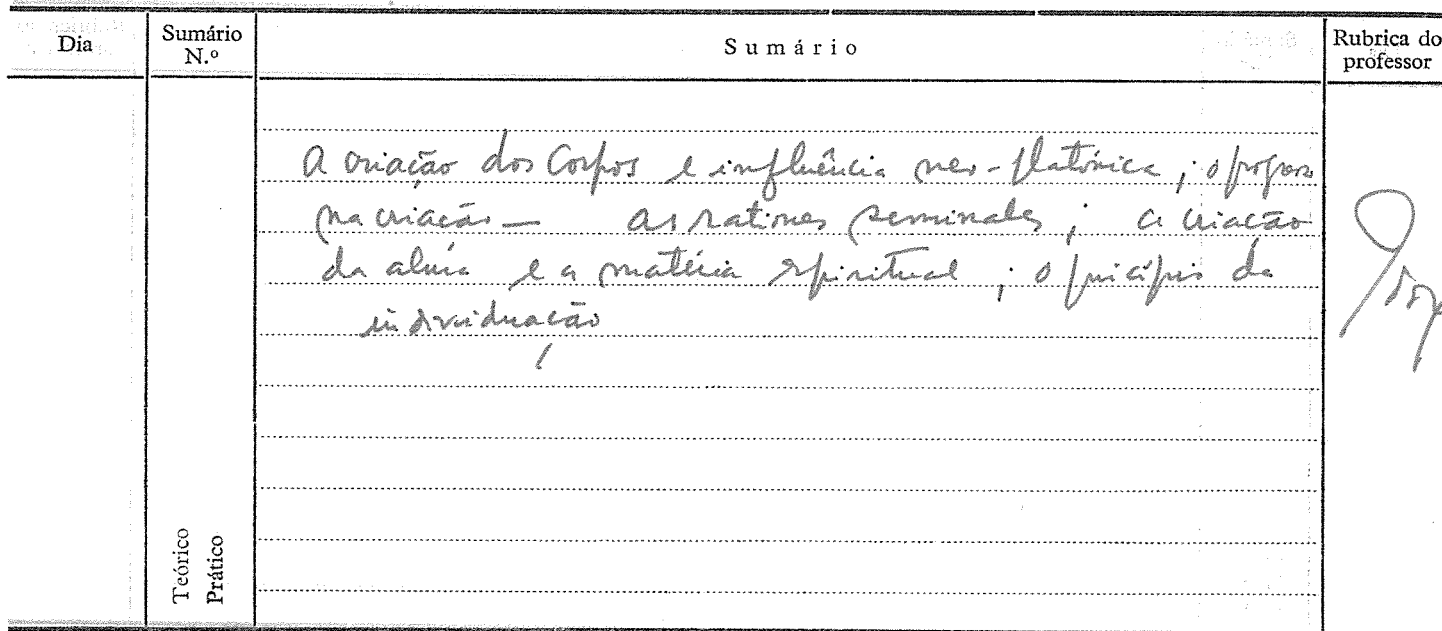 Dia
Sumário N.º
Sumário
Rubrica do professor
A criação dos Corpos e influência neo-platónica; o progresso
na criação — as rationes seminales; a criação
da alma e a matéria espiritual; o princípio da
individuação
Teórico
Prático